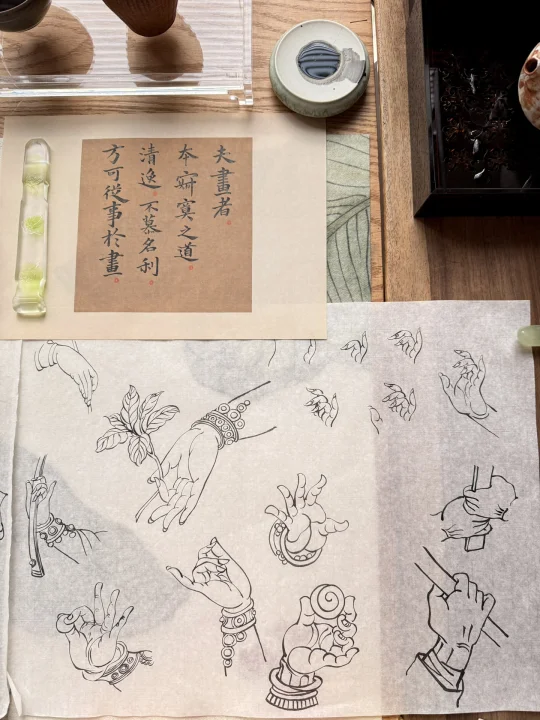 夫畫者
本寂寞之道
清逸不慕名利
方可從事於畫